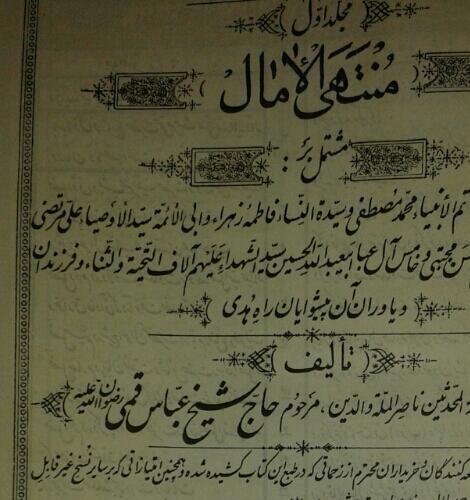 مجلد اول
مُنتَهَی الآمال
مشتمل بر :
الأنبیاء محمد مصطفی و سیدة النساء فاطمه زهراء و ابی الأئمة سید الأوصیاء علی مرتضی
مجتبی و خامس آل عبا ابیعبدالله الحسین سید الشهداء علیهم آلاف التحیة والثناء و فرزندان
و یاوران آن پیشوایان راه هُدی
تألیف
المحدثین ناصر الملة والدین ، مرحوم حاج شیخ عباس قمی رضوان الله علیه
کنندگان و خریداران محترم از زحماتی که در طبع این کتاب کشیده شده و همچنین امتیازاتی که بر سایر نسخ غیر قابل